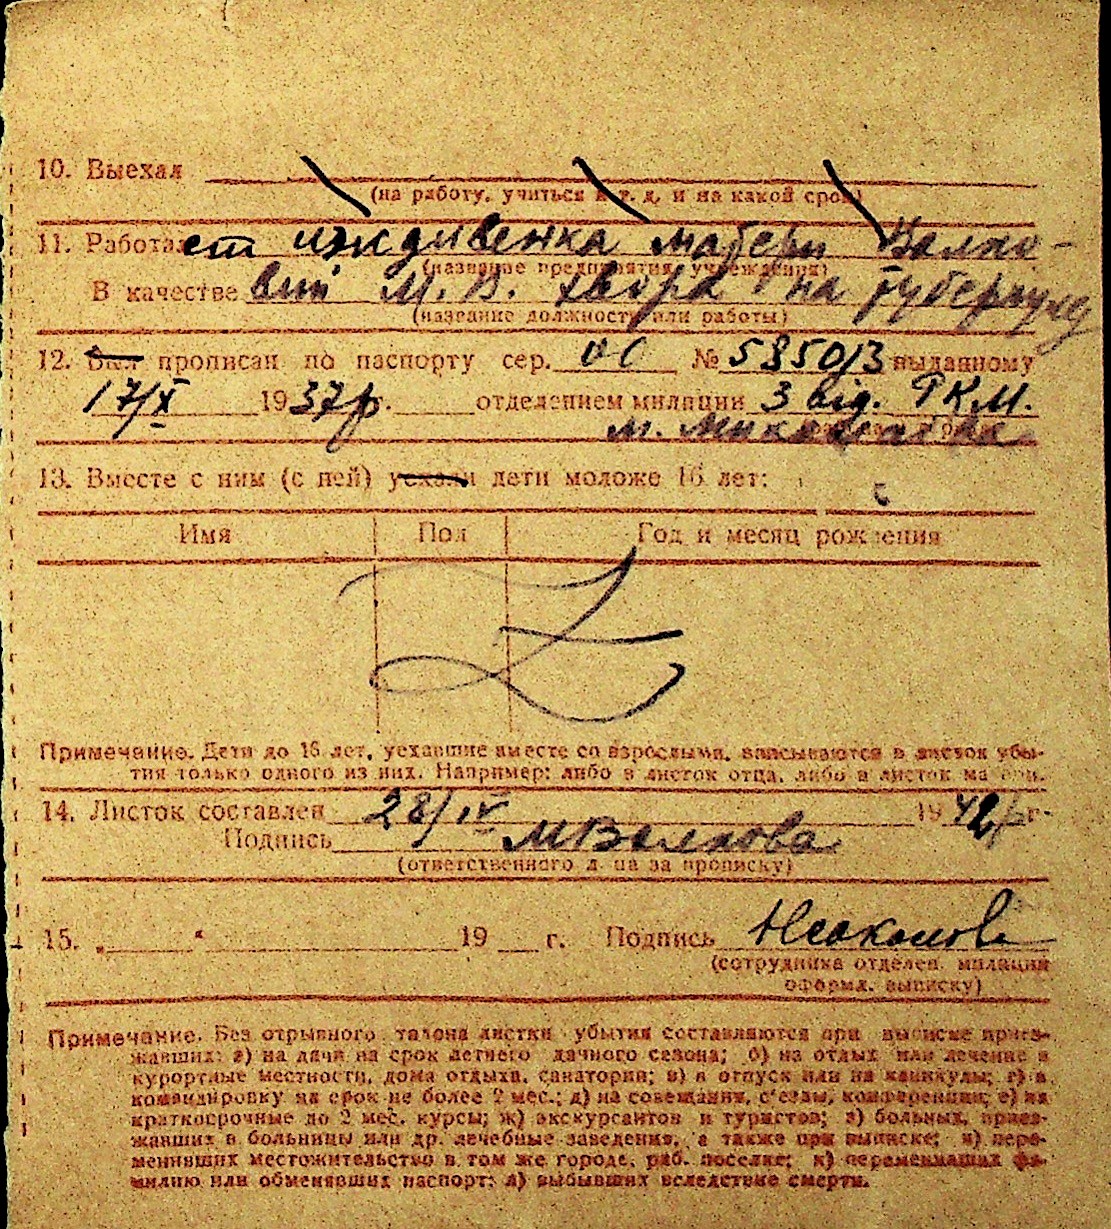 10. Выехал
(на работу, учиться и т. д. и на какой срок)
11. Работает иждивенка матери Волко-
(название предприятия, учреждения)
В качестве вій М. В. хвора на туберкул
(название должности или работы)
12. Был прописан по паспорту сер. ОС № 585013 выданному
17/X 1937р г. отделением милиции 3 від. РКМ.
м.
13. Вместе с ним (с ней) уехали дети моложе 16 лет:
Имя Пол Год и месяц рождения
Z
Примечание. Дети до 16 лет, уехавшие вместе со взрослыми, вписываются в листок убы-
тия только одного из них. Например: либо в листок отца, либо в листок матери.
14. Листок составлен 28/IV 1942р г.
Подпись МВолкова
(ответственного лица за прописку)
15. „ “ 19 г. Подпись
(сотрудника отделен. милиции
оформл. выписку)
Примечание. Без отрывного талона листки убытия составляются при выписке приез-
жавших: а) на дачи на срок летнего дачного сезона; б) на отдых или лечение в
курортные местности, дома отдыха, санатории; в) в отпуск или на каникулы; г) в
командировку на срок не более 2 мес.; д) на совещания, с'езды, конференции; е) на
краткосрочные до 2 мес. курсы; ж) экскурсантов и туристов; з) больных, приез-
жавших в больницы или др. лечебные заведения, а также при выписке; и) пере-
менивших местожительство в том же городе, раб. поселке; к) переменивших фа-
милию или обменявших паспорт; л) выбывших вследствие смерти.